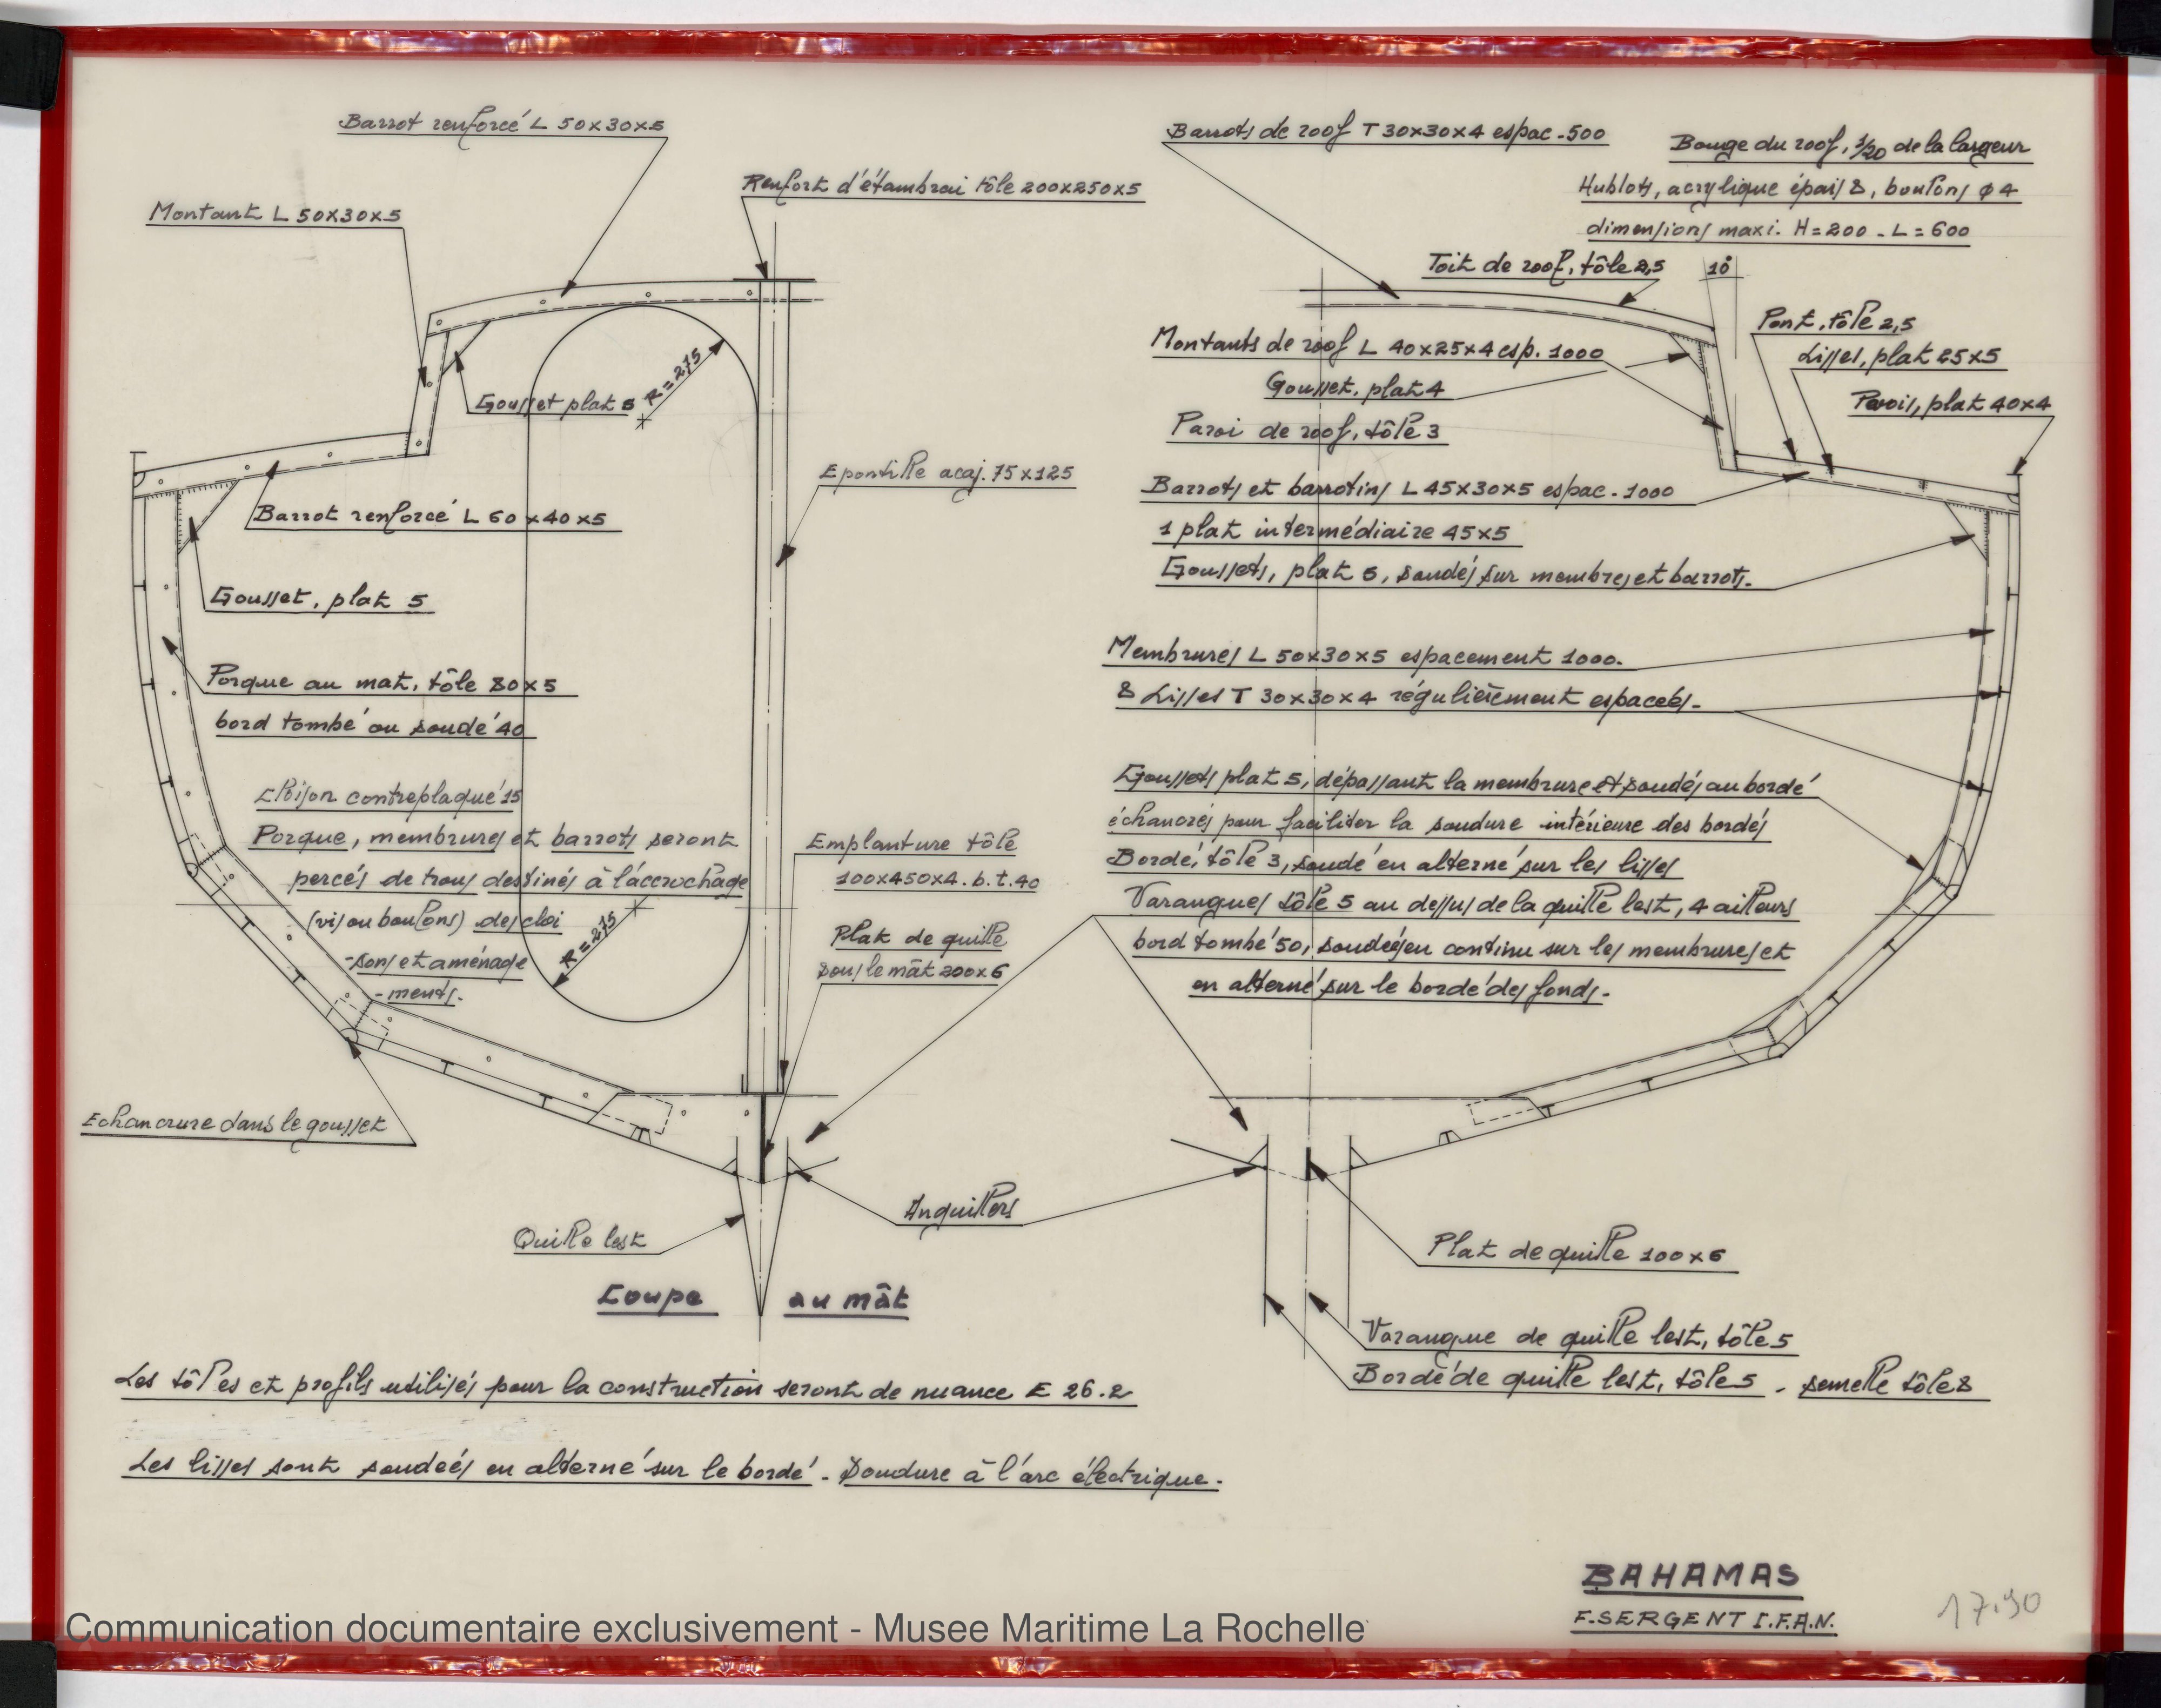 Barrot renforcé L 50x30x5
Montant L 50x30x5
Renfort d'étambrai tôle 200x250x5
Gousset plat 5
R = 275
Barrot renforcé L 60x40x5
Gousset, plat 5
Epontille acaj. 75x125
Porque au mat, tôle 80x5
bord tombé ou soudé 40
Cloison contreplaqué 15
Porque, membrures et barrots seront
percés de trous destinés à l'accrochage
(vis ou boulons) des cloi
-sons et aménage
-ments.
R = 275
Emplanture tôle
100x450x4. b.t. 40
Plat de quille
sous le mât 200x6
Echancrure dans le gousset
Quille lest
Anguillers
Coupe au mât
Barrots de roof T 30x30x4 espac. 500
Bouge du roof, 1/20 de la largeur
Hublots, acrylique épais 8, boulons φ 4
dimensions maxi. H = 200 - L = 600
Toit de roof, tôle 2,5
10°
Montants de roof L 40x25x4 esp. 1000
Gousset, plat 4
Paroi de roof, tôle 3
Pont, tôle 2,5
Lisses, plat 25x5
Pavois, plat 40x4
Barrots et barrotins L 45x30x5 espac. 1000
1 plat intermédiaire 45x5
Goussets, plat 5, soudés sur membres et barrots.
Membrures L 50x30x5 espacement 1000.
8 Lisses T 30x30x4 régulièrement espacées.
Goussets plat 5, dépassant la membrure et soudés au bordé
échancrés pour faciliter la soudure intérieure des bordés
Bordé, tôle 3, soudé en alterné sur les lisses
Varangues tôle 5 au dessus de la quille lest, 4 ailleurs
bord tombé 50, soudées en continu sur les membrures et
en alterné sur le bordé des fonds.
Plat de quille 100x6
Varangue de quille lest, tôle 5
Bordé de quille lest, tôle 5 - semelle tôle 8
Les tôles et profils utilisés pour la construction seront de nuance E 26.2
Les lisses sont soudées en alterné sur le bordé - Soudure à l'arc électrique.
BAHAMAS
F. SERGENT I.F.A.N.
17.90
Communication documentaire exclusivement - Musee Maritime La Rochelle